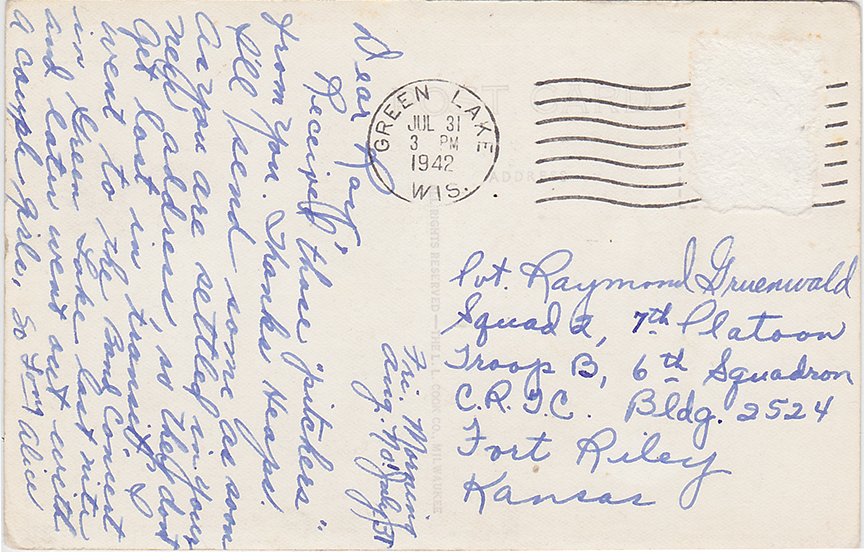 Fri. Morning
Aug. No! July 31
Dear Ray,
Received those "pitchers"
from you. Thanks Heaps.
I'll send some as soon
As you are settled in your
new address, so they don't
get lost in transit. I
went to the Band Concert
in Green Lake last nite
and later went out with
a couple girls. So Long Alice
GREEN LAKE
JUL 31
3 PM
1942
WIS.
ADDRESS
RIGHTS RESERVED - THE L. L. COOK CO. MILWAUKEE
Pvt. Raymond Gruenwald
Squad 2, 7th Platoon
Troop B, 6th Squadron
C.R.T.C. Bldg. 2524
Fort Riley
Kansas